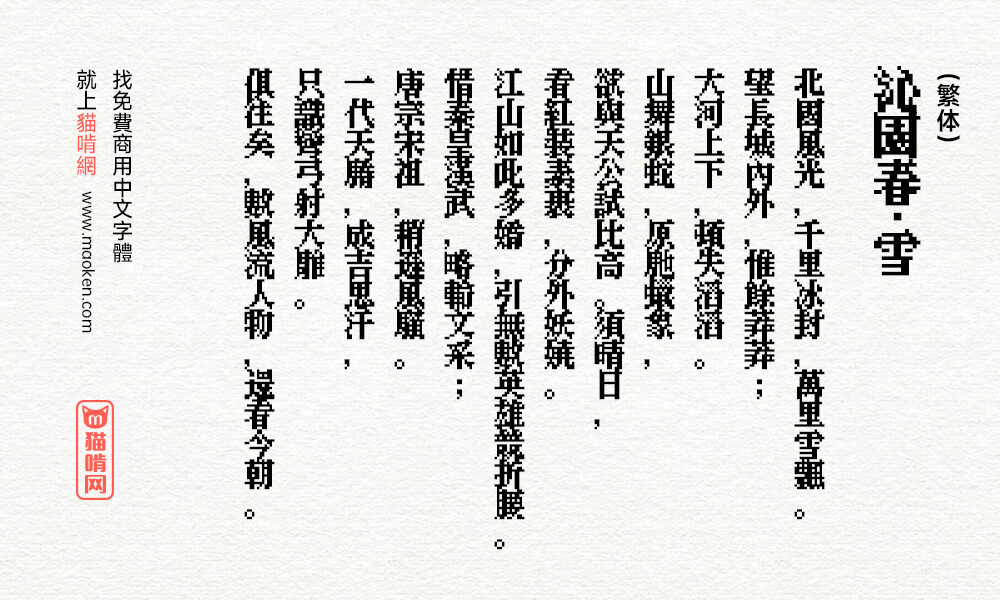 (繁体)
沁園春·雪
北國風光,千里冰封,萬里雪飄。
望長城內外,惟餘莽莽;
大河上下,頓失滔滔。
山舞銀蛇,原馳蠟象,
欲與天公試比高。須晴日,
看紅裝素裹,分外妖嬈。
江山如此多嬌,引無數英雄競折腰。
惜秦皇漢武,略輸文采;
唐宗宋祖,稍遜風騷。
一代天驕,成吉思汗,
只識彎弓射大雕。
俱往矣,數風流人物,還看今朝。
找免費商用中文字體
就上貓啃網 www.maoken.com
猫啃网